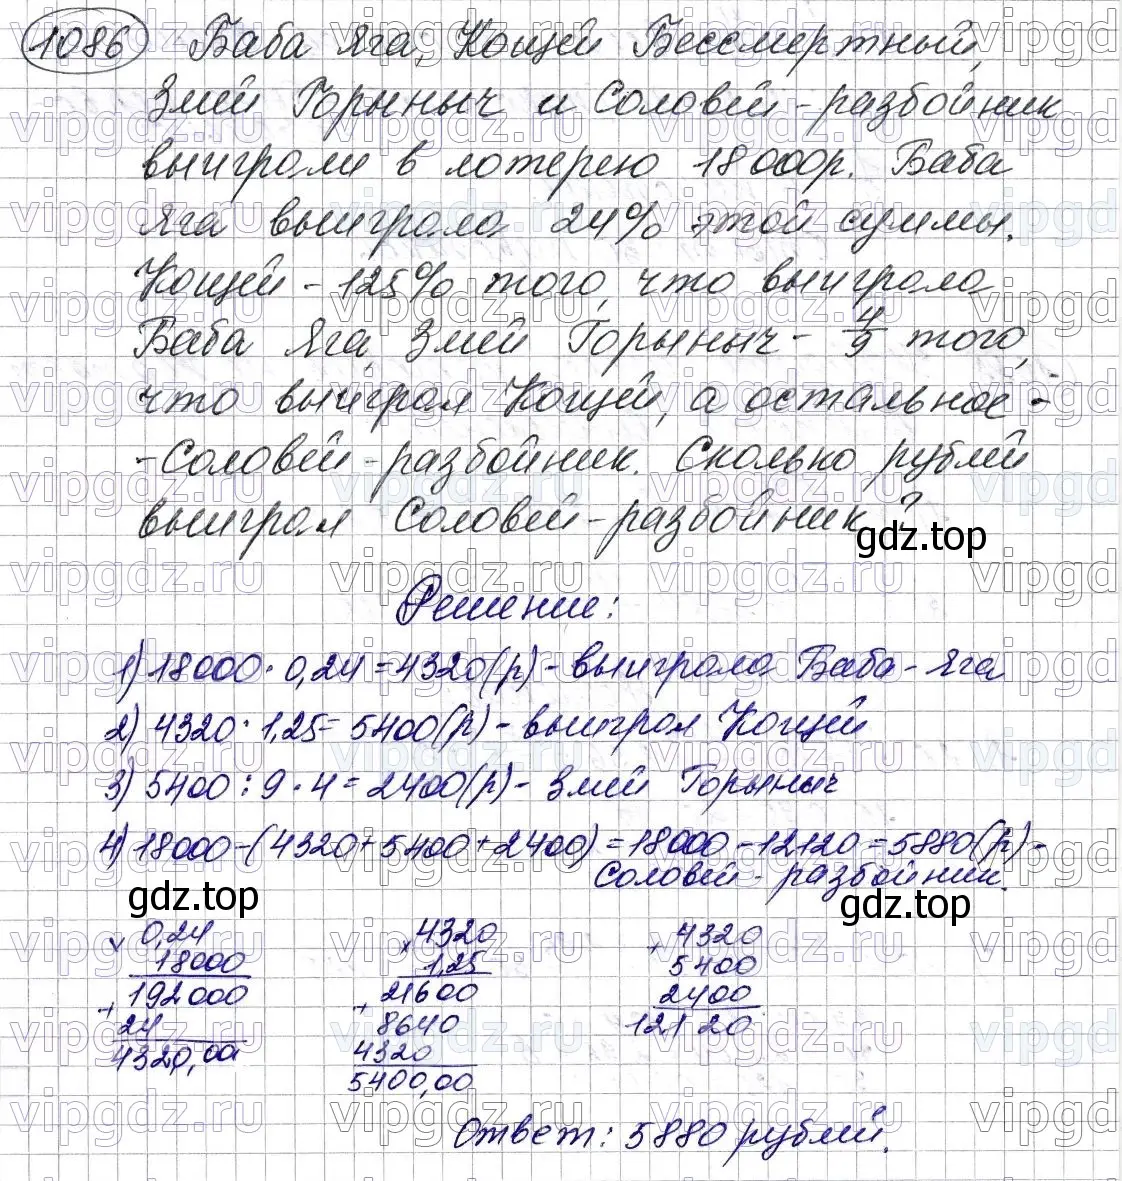 1086 Баба Яга, Кощей Бессмертный,
Змей Горыныч и Соловей-разбойник
выиграли в лотерею 18000р. Баба
Яга выиграла 24% этой суммы.
Кощей - 125% того, что выиграла
Баба Яга, Змей Горыныч - 4/9 того,
что выиграл Кощей, а остальное -
-Соловей-разбойник. Сколько рублей
выиграл Соловей-разбойник?
gdz.top
Решение:
1) 18000 · 0,24 = 4320(р) - выиграла Баба-Яга
2) 4320 · 1,25 = 5400(р) - выиграл Кощей
3) 5400 : 9 · 4 = 2400(р) - Змей Горыныч
4) 18000 - (4320 + 5400 + 2400) = 18000 - 12120 = 5880(р) -
Соловей-разбойник.
gdz.top
× 0,24 × 4320 + 4320
18000 1,25 5400
+ 192000 + 21600 2400
24 8640 12120
4320,00 4320
5400,00
Ответ: 5880 рублей.
vipgdz.ru